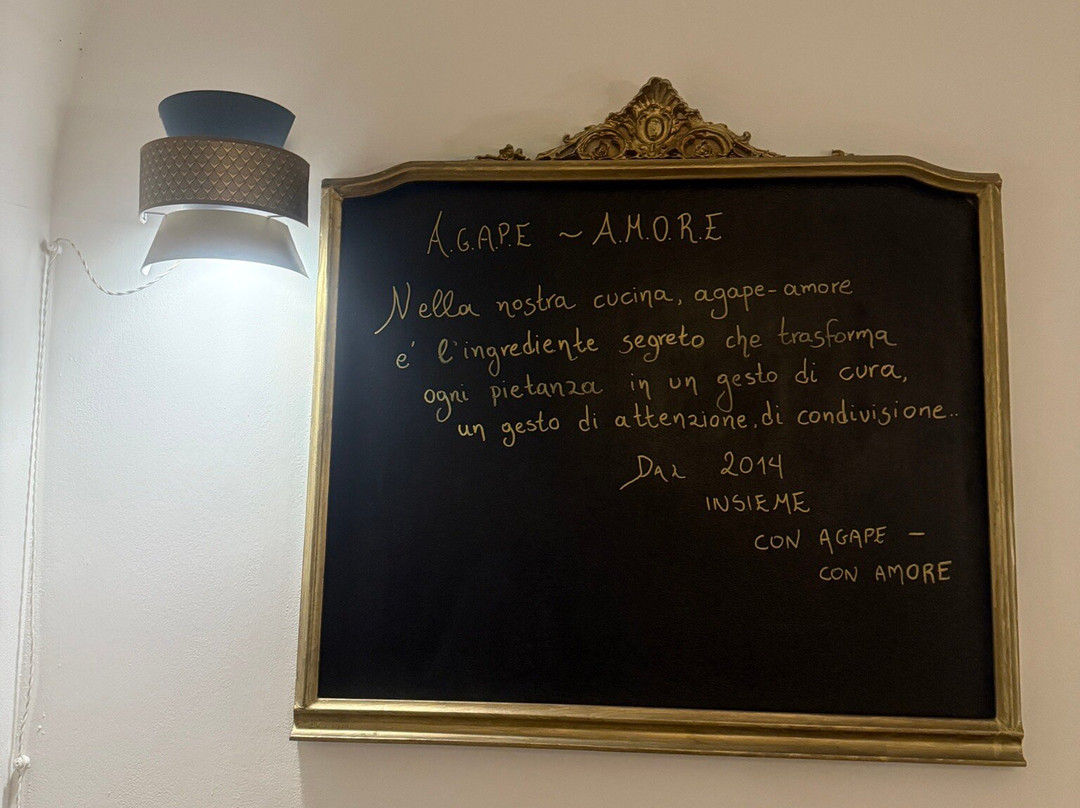 A.G.A.P.E ~ A.M.O.R.E
Nella nostra cucina, agape-amore
e' l'ingrediente segreto che trasforma
ogni pietanza in un gesto di cura,
un gesto di attenzione, di condivisione..
Dal 2014
INSIEME
CON AGAPE -
CON AMORE